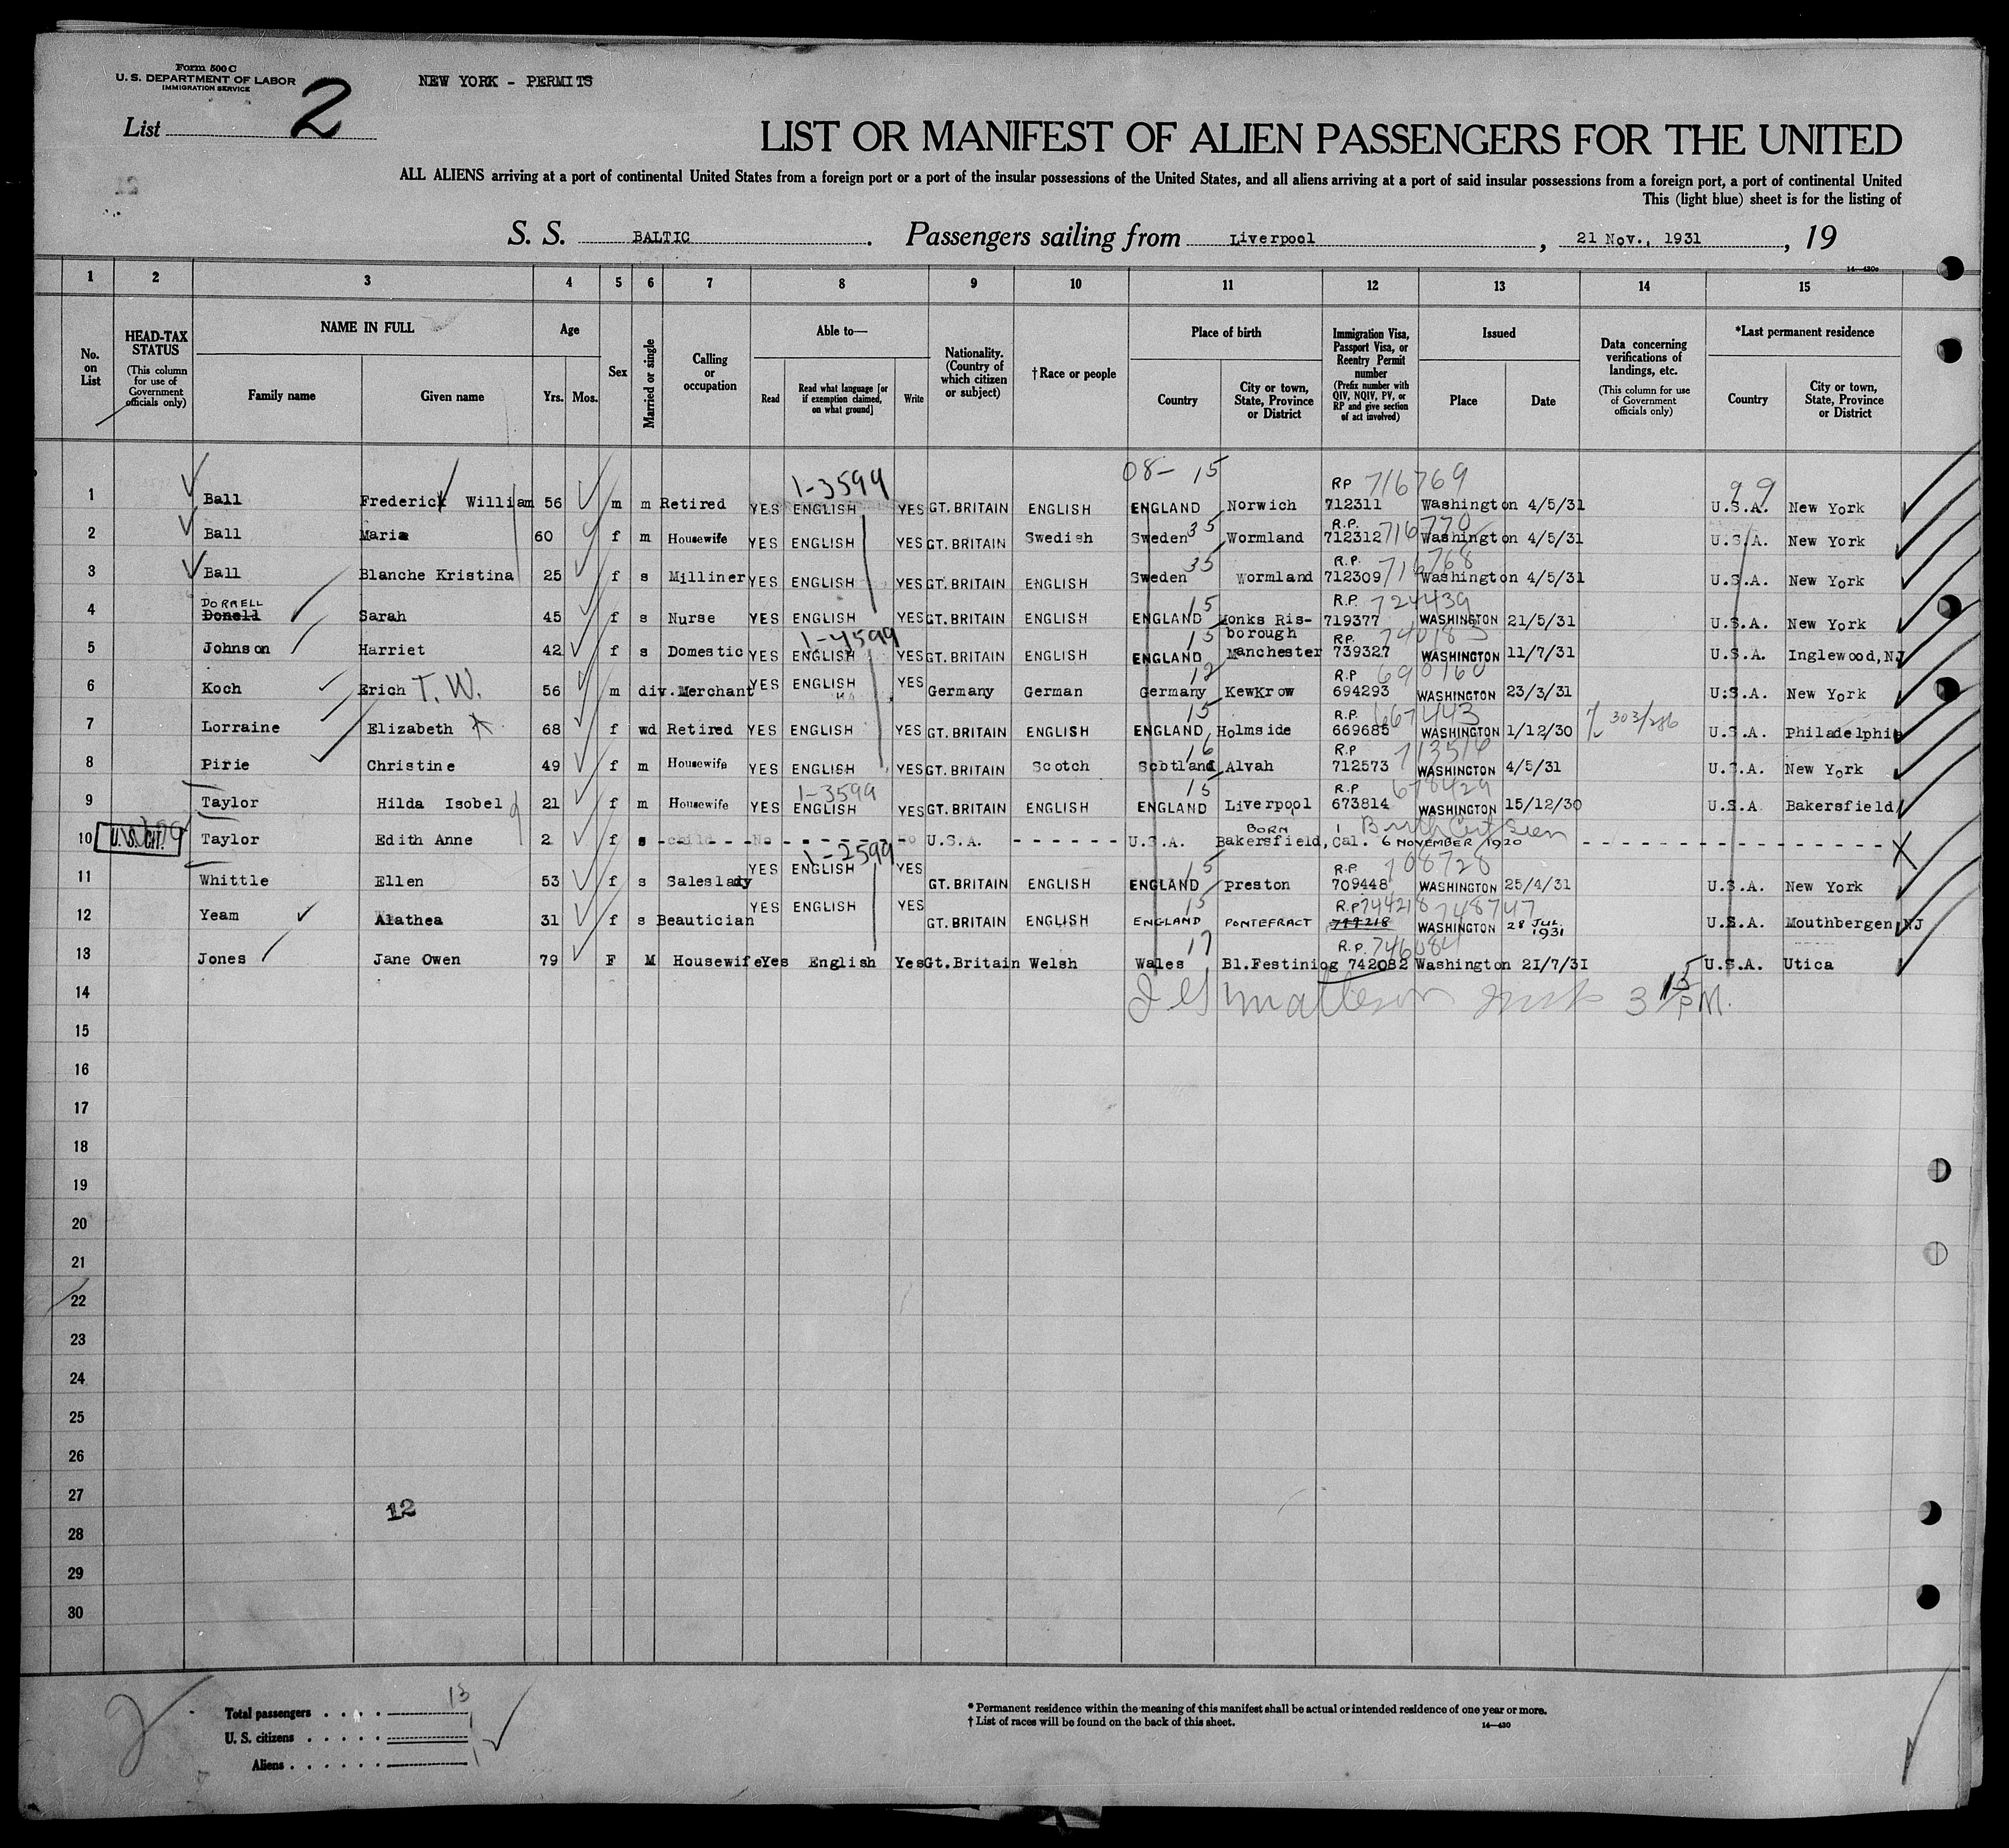 Form 500 C
U. S. DEPARTMENT OF LABOR
IMMIGRATION SERVICE
NEW YORK - PERMITS
List 2
LIST OR MANIFEST OF ALIEN PASSENGERS FOR THE UNITED
ALL ALIENS arriving at a port of continental United States from a foreign port or a port of the insular possessions of the United States, and all aliens arriving at a port of said insular possessions from a foreign port, a port of continental United
This (light blue) sheet is for the listing of
S. S. BALTIC. Passengers sailing from Liverpool, 21 Nov., 1931, 19
14—430c
1 2 3 4 5 6 7 8 9 10 11 12 13 14 15
No. on List
HEAD-TAX STATUS (This column for use of Government officials only)
NAME IN FULL Family name Given name
Age Yrs. Mos.
Sex
Married or single
Calling or occupation
Able to— Read Read what language [or if exemption claimed, on what ground] Write
Nationality. (Country of which citizen or subject)
†Race or people
Place of birth Country City or town, State, Province or District
Immigration Visa, Passport Visa, or Reentry Permit number (Prefix number with QIV, NQIV, PV, or RP and give section of act involved)
Issued Place Date
Data concerning verifications of landings, etc. (This column for use of Government officials only)
*Last permanent residence Country City or town, State, Province or District
1-3599 08- 15 RP 716769 99
1 Ball Frederick William 56 m m Retired YES ENGLISH YES GT. BRITAIN ENGLISH ENGLAND Norwich 712311 Washington 4/5/31 U.S.A. New York
35 R.P. 716770
2 Ball Maria 60 f m Housewife YES ENGLISH YES GT. BRITAIN Swedish Sweden Wormland 712312 Washington 4/5/31 U.S.A. New York
35 R.P. 716768
3 Ball Blanche Kristina 25 f s Milliner YES ENGLISH YES GT. BRITAIN ENGLISH Sweden Wormland 712309 Washington 4/5/31 U.S.A. New York
DORRELL 15 R.P. 724439
4 Donell Sarah 45 f s Nurse YES ENGLISH YES GT. BRITAIN ENGLISH ENGLAND Monks Ris-borough 719377 WASHINGTON 21/5/31 U.S.A. New York
1-4599 15 RP.
5 Johnson Harriet 42 f s Domestic YES ENGLISH YES GT. BRITAIN ENGLISH ENGLAND Manchester 739327 WASHINGTON 11/7/31 U.S.A. Inglewood, NJ
12 R.P 690160
6 Koch Erich T. W. 56 m div. Merchant YES ENGLISH YES Germany German Germany KewKrow 694293 WASHINGTON 23/3/31 U.S.A. New York
15 R.P. 667443
7 Lorraine Elizabeth X 68 f wd Retired YES ENGLISH YES GT. BRITAIN ENGLISH ENGLAND Holmside 669685 WASHINGTON 1/12/30 303/286 U.S.A. Philadelphia
16 R.P 713516
8 Pirie Christine 49 f m Housewife YES ENGLISH YES GT. BRITAIN Scotch Scotland Alvah 712573 WASHINGTON 4/5/31 U.S.A. New York
1-3599 15 R.P 678429
9 Taylor Hilda Isobel 21 f m Housewife YES ENGLISH YES GT. BRITAIN ENGLISH ENGLAND Liverpool 673814 WASHINGTON 15/12/30 U.S.A Bakersfield
BORN Birth Cert Seen
10 U.S. CIT. Taylor Edith Anne 2 f s - child - No - - - - No U.S.A. - - - - - - U.S.A. Bakersfield, Cal. 6 NOVEMBER 1920 - - - - - - - - X
1-2599 15 R.P. 708728
11 Whittle Ellen 53 f s Saleslady YES ENGLISH YES GT. BRITAIN ENGLISH ENGLAND Preston 709448 WASHINGTON 25/4/31 U.S.A. New York
15 R.P 744218 748747
12 Yeam Alathea 31 f s Beautician YES ENGLISH YES GT. BRITAIN ENGLISH ENGLAND PONTEFRACT 744218 WASHINGTON 28 JUL 1931 U.S.A. Mouthbergen, NJ
17 R.P. 746084
13 Jones Jane Owen 79 F M Housewife Yes English Yes Gt.Britain Welsh Wales Bl.Festiniog 742082 Washington 21/7/31 U.S.A. Utica
14 3 15 P.M.
15
16
17
18
19
20
21
22
23
24
25
26
27
12
28
29
30
2
Total passengers . . . . 13
U. S. citizens . . . . . 1
Aliens . . . . . .
* Permanent residence within the meaning of this manifest shall be actual or intended residence of one year or more.
† List of races will be found on the back of this sheet.
14—430